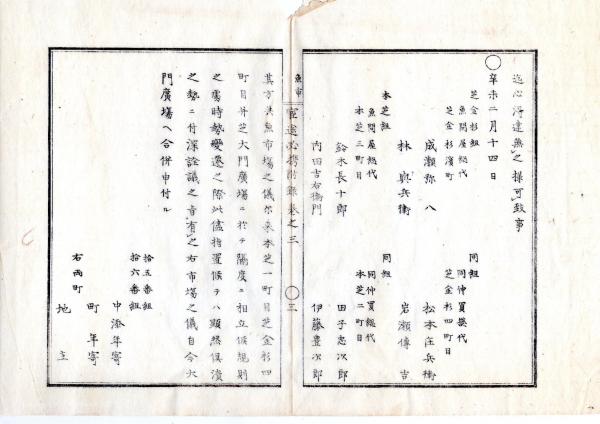 迄心得違無之様可致事
〇辛未二月十四日
芝金杉組
魚問屋総代
芝金杉濱町
成瀬弥八
林與兵衛
同組
同仲買総代
芝金杉四町目
松本庄兵衛
岩瀬傳吉
本芝組
魚問屋総代
本芝三町目
鈴木長十郎
内田吉右衛門
同組
同仲買総代
本芝二町目
田子忠次郎
伊藤豊次郎
魚市
附録巻之三
〇三
其方共魚市場之儀尓来本芝一町目芝金杉四
町目并芝大門廣場ニ於テ隔度ニ相立候規則
之處時勢變遷之際此儘指置候テハ顕然俱潰
之勢ニ付深詮議之旨有之右市場之儀自今大
門廣場ヘ合併申付ル
拾五番組
拾六番組
中添年寄
町年寄
右両町
地主